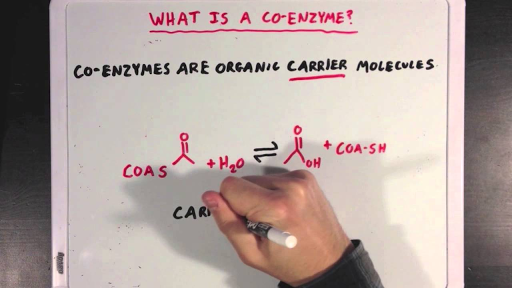 WHAT IS A CO-ENZYME?
CO-ENZYMES ARE ORGANIC CARRIER MOLECULES
O O
COAS + H₂O ⇌ OH + COA-SH
CAR